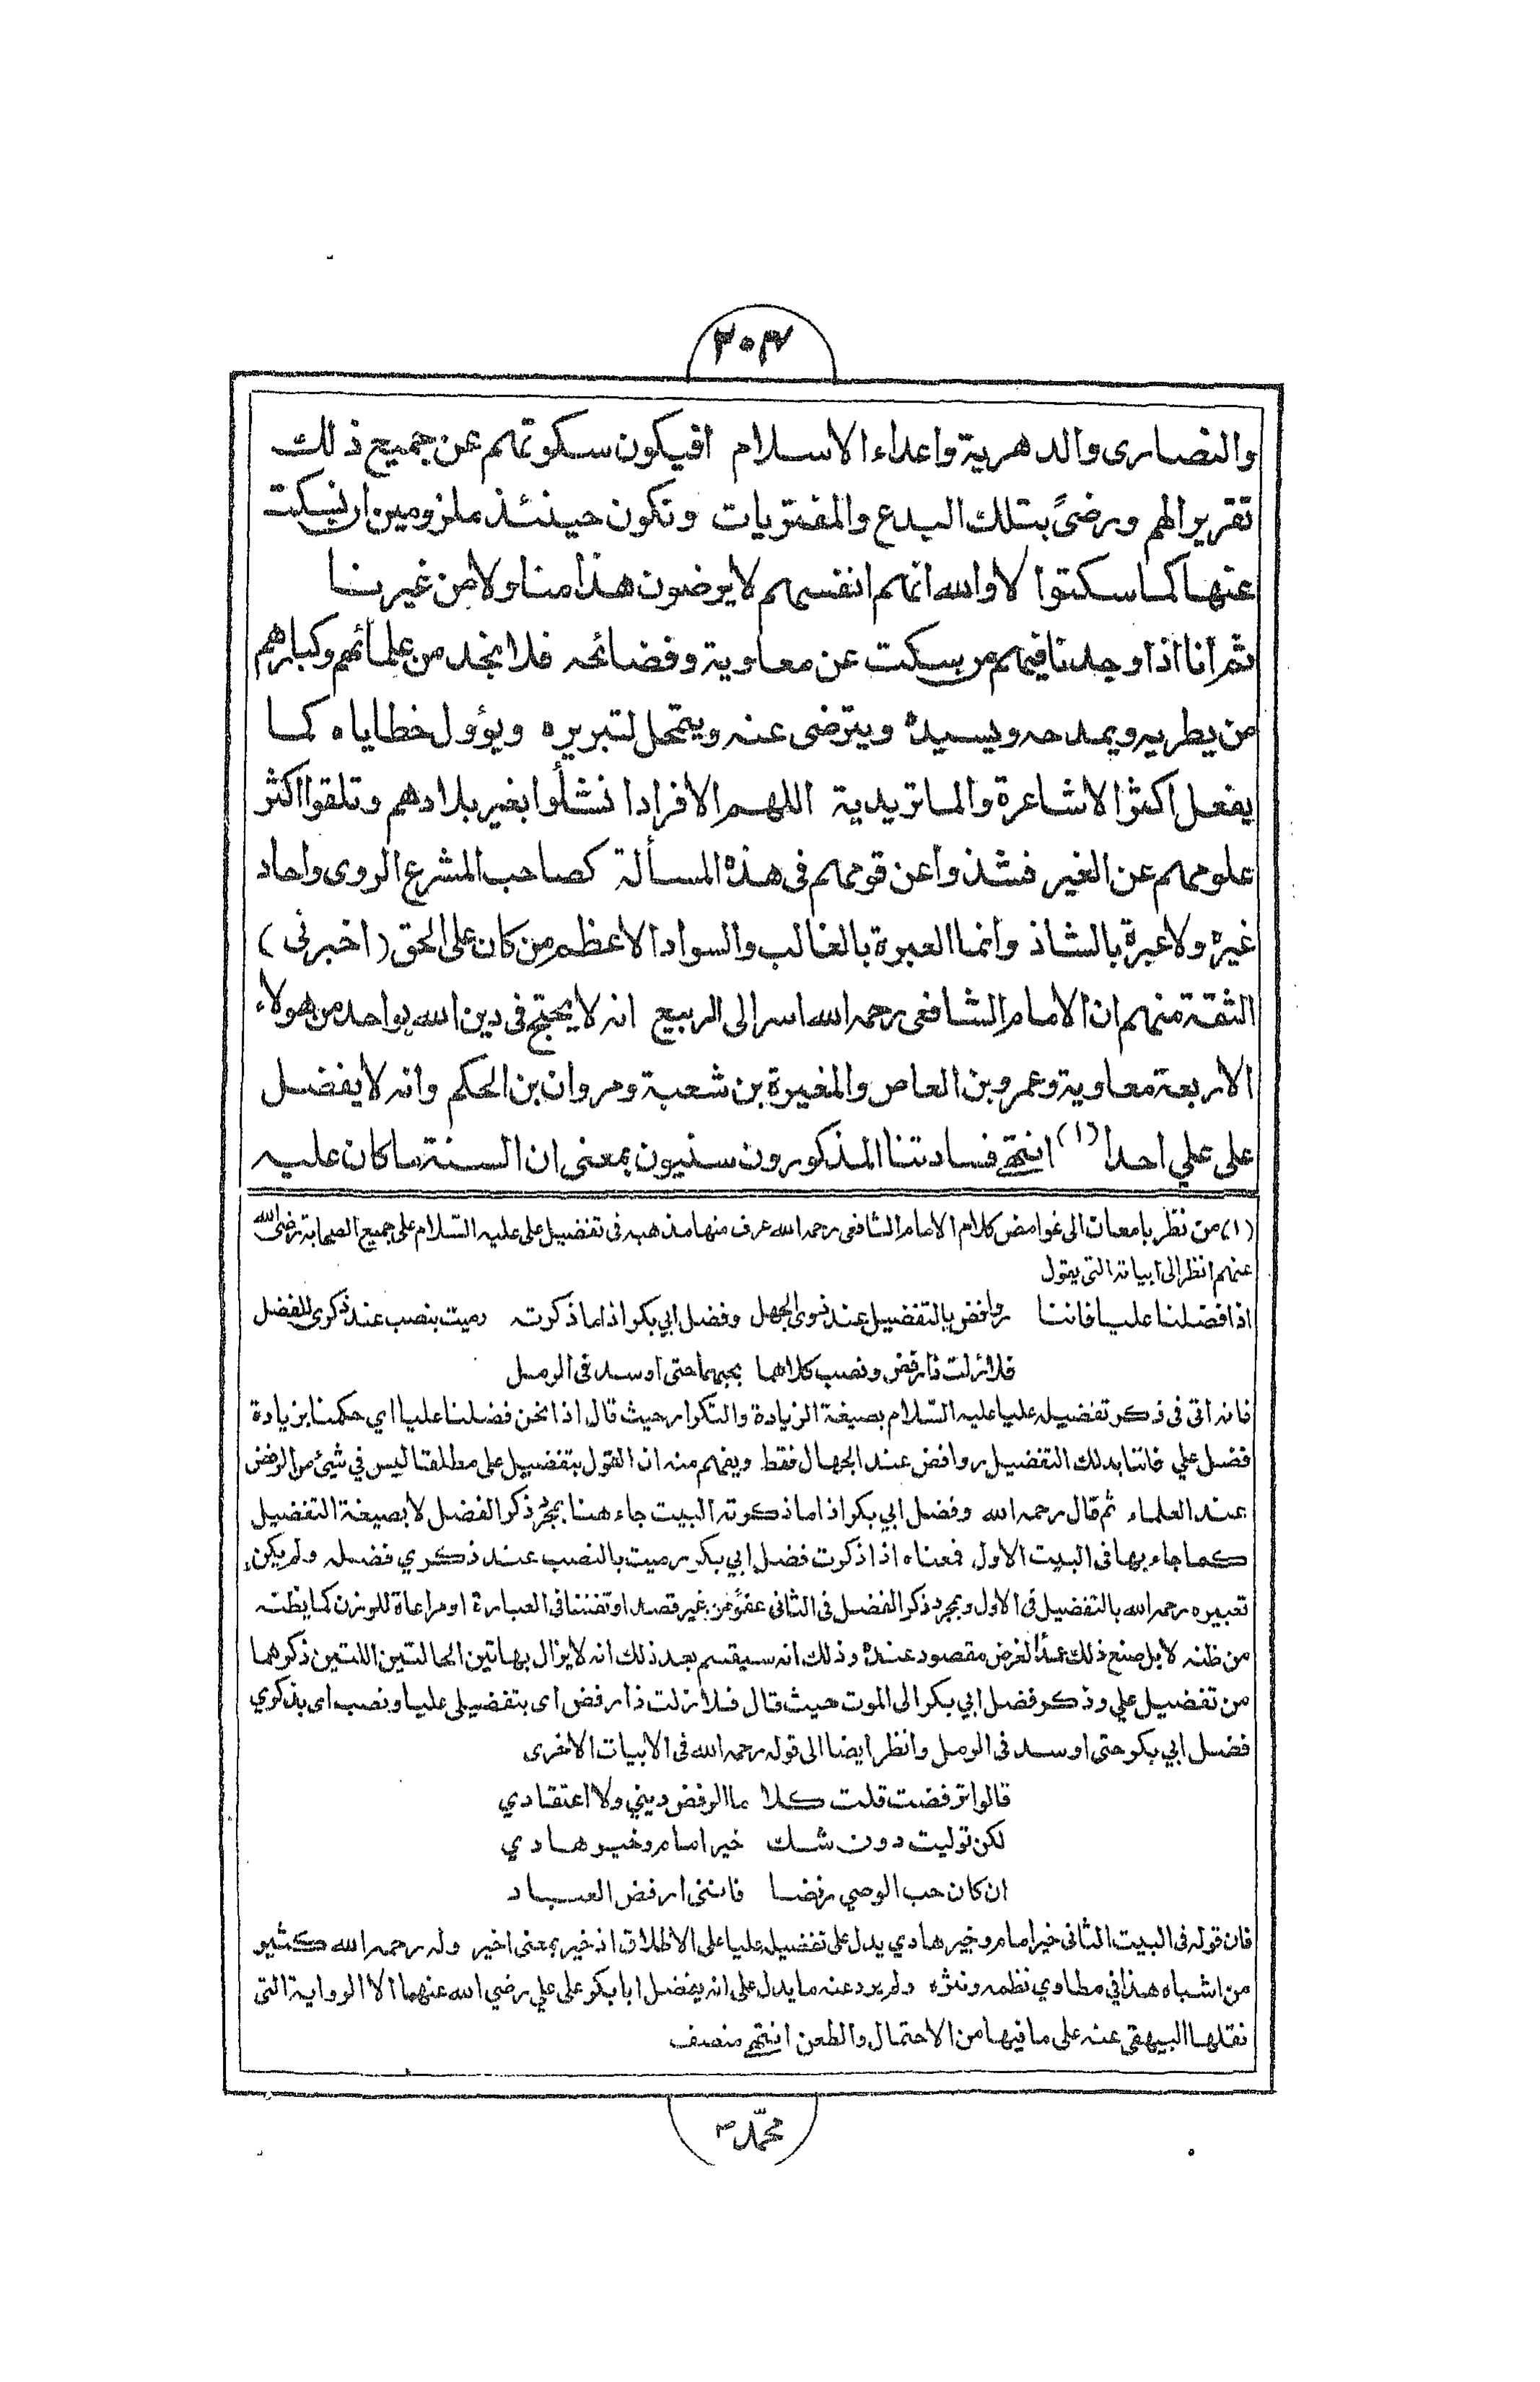 ٢٠٣
والنصارى والدهرية واعداء الاسلام افيكون سكوتهم عن جميع ذلك
تقريرا لهم ورضىً بتلك البدع والمفتريات ونكون حينئذ ملزومين ان نسكت
عنها كما سكتوا لا والله انهم انفسهم لا يرضون هذا منا ولا من غيرنا
ثم انا اذا وجدنا فيهم من يسكت عن معاوية وفضائحه فلا نجد من علمائهم وكبارهم
من يطريه ويمدحه ويسيده ويترضى عنه ويتمحل لتبريره ويؤول خطاياه كما
يفعل اكثر الاشاعرة والماتريدية اللهم الا فرادا نشأوا بغير بلادهم وتلقوا اكثر
علومهم عن الغير فشذوا عن قومهم فى هذه المسألة كصاحب المشرع الروى واحاد
غيره ولا عبرة بالشاذ وانما العبرة بالغالب والسواد الاعظم من كان على الحق (اخبرنى)
الثقة منهم ان الامام الشافعى رحمه الله اسر الى الربيع انه لا يحتج فى دين الله بواحد من هولاء
الاربعة معاوية وعمرو بن العاص والمغيرة بن شعبة ومروان بن الحكم وانه لا يفضل
على علي احدا (١) انتهى فسادتنا المذكورون سنيون بمعنى ان السنة ما كان عليه
(١) من نظر بامعان الى غوامض كلام الامام الشافعى رحمه الله عرف منها مذهبه فى تفضيل على عليه السّلام على جميع الصحابة رضى الله
عنهم انظر الى ابياته التى يقول
اذا فضلنا عليا فاننا روافض بالتفضيل عند ذوى الجهل وفضل ابي بكر اذا ما ذكرته رميت بنصب عند ذكرى للفضل
فلا زلت ذا رفض ونصب كلاهما بحبهما حتى اوسد فى الرمل
فانه اتى فى ذكر تفضيله عليا عليه السّلام بصيغة الزيادة والتكرار حيث قال اذا نحن فضلنا عليا اي حكمنا بزيادة
فضل علي فاننا بذلك التفضيل روافض عند الجهال فقط ويفهم منه ان القول بتفضيل على مطلقا ليس في شيئ من الرفض
عند العلماء ثم قال رحمه الله وفضل ابي بكر اذا ما ذكرته البيت جاء هنا بمجرد ذكر الفضل لا بصيغة التفضيل
كما جاء بها فى البيت الاول فمعناه اذا ذكرت فضل ابي بكر رميت بالنصب عند ذكري فضله ولم يكن
تعبيره رحمه الله بالتفضيل فى الاول وبمجرد ذكر الفضل فى الثانى عفوًا من غير قصد او تفننا فى العبارة او مراعاة للوزن كما يظنه
من ظنه لا بل صنع ذلك عمدًا لغرض مقصود عنده وذلك انه سيقسم بعد ذلك انه لا يزال بهاتين الحالتين اللتين ذكرهما
من تفضيل علي وذكر فضل ابي بكر الى الموت حيث قال فلا زلت ذا رفض اى بتفضيلى عليا ونصب اى بذكري
فضل ابي بكر حتى اوسد فى الرمل وانظر ايضا الى قوله رحمه الله فى الابيات الاخرى
قالوا ترفضت قلت كلا ما الرفض ديني ولا اعتقادي
لكن توليت دون شك خير امام وخير هادي
ان كان حب الوصي رفضا فاننى ارفض العباد
فان قوله فى البيت الثانى خير امام وخير هادي يدل على تفضيله عليا على الاطلاق اذ خير بمعنى اخير وله رحمه الله كثير
من اشباه هذا في مطاوي نظمه ونثره ولم يرد عنه ما يدل على انه يفضل ابا بكر على علي رضي الله عنهما الا الرواية التى
نقلها البيهقى عنه على ما فيها من الاحتمال والطعن انتهى منصف
محمّد